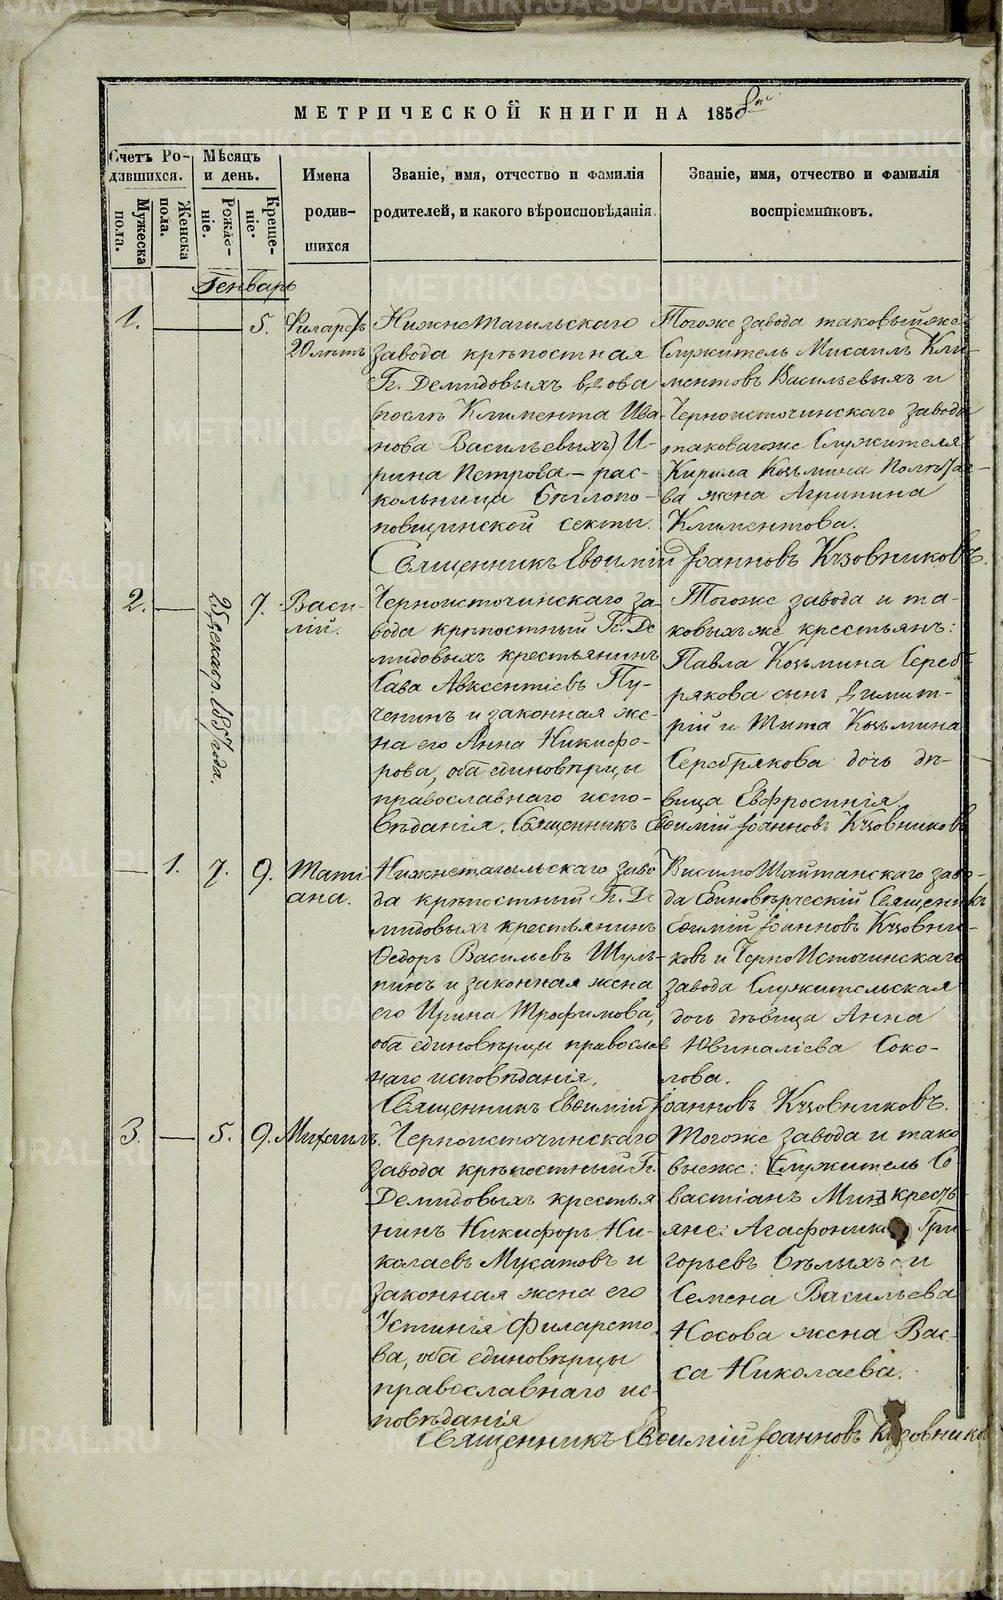 МЕТРИЧЕСКОЙ КНИГИ НА 1858
Счетъ Ро-
дившихся.
Мужеска
пола.
Женска
пола.
Мѣсяцъ
и день.
Рожде-
ніе.
Креще-
ніе.
Имена
родив-
шихся
Званіе, имя, отчество и фамилія
родителей, и какого вѣроисповѣданія.
Званіе, имя, отчество и фамилія
воспріемниковъ.
Генварь
1.
5.
Филаретъ
20 лѣтъ
НижнеТагильскаго
завода крѣпостная
Гг. Демидовыхъ вдова
(послѣ Климента Ива-
нова Васильевыхъ) И-
рина Петрова – рас-
кольница Бѣглопо-
повщинской секты.
Тогоже завода таковыйже
Служитель Мисаилъ Кли-
ментовъ Васильевыхъ и
Черноисточинскаго завода
таковагоже Служителя
Кирила Козьмина
ва жена Агрипина
Климентова.
Священникъ Евѳимій Іоанновъ Кузовниковъ.
2.
25 декабр. 1857 года.
7.
Васи-
лій.
Черноисточинскаго за-
вода крѣпостный Гг. Де
мидовыхъ крестьянинъ
Сава Авксентіевъ Пу-
ченинъ и законная же-
на его Анна Никифо-
рова, оба единовѣрцы
православнаго испо-
вѣданія.
Тогоже завода и та-
ковыхъже крестьянъ:
Павла Козьмина Сереб-
рякова сынъ Димит-
рій и Тита Козьмина
Серебрякова дочь дѣ-
вица Евфросинія.
Священникъ Евѳимій Іоанновъ Кузовниковъ
1.
7.
9.
Таті-
ана.
Нижнетагильскаго заво
да крѣпостный Гг. Де
мидовыхъ крестьянинъ
Ѳедоръ Васильевъ Шуль-
пинъ и законная жена
его Ирина Трофимова,
оба единовѣрцы православ
наго исповѣданія.
ВисимоШайтанскаго заво-
да Единовѣрческій Священникъ
Евѳимій Іоанновъ Кузовни-
ковъ и ЧерноИсточинскаго
завода Служительская
дочь дѣвица Анна
Ювиналіева Соко-
лова.
Священникъ Евѳимій Іоанновъ Кузовниковъ.
3.
5.
9.
Михаилъ.
Черноисточинскаго
завода крѣпостный Гг.
Демидовыхъ крестья
нинъ Никифоръ Ни-
колаевъ Мусатовъ и
законная жена его
Устинія Филарето
ва, оба единовѣрцы
православнаго ис-
повѣданія
Тогоже завода и тако
выеже: Служитель Се
вастіанъ кресть-
яне: Агафоникъ Гри-
горьевъ Бѣлыхъ и
Семена Васильева
Носова жена Вас-
са Николаева.
Священникъ Евѳимій Іоанновъ Кузовников
METRIKI.GASO-URAL.RU